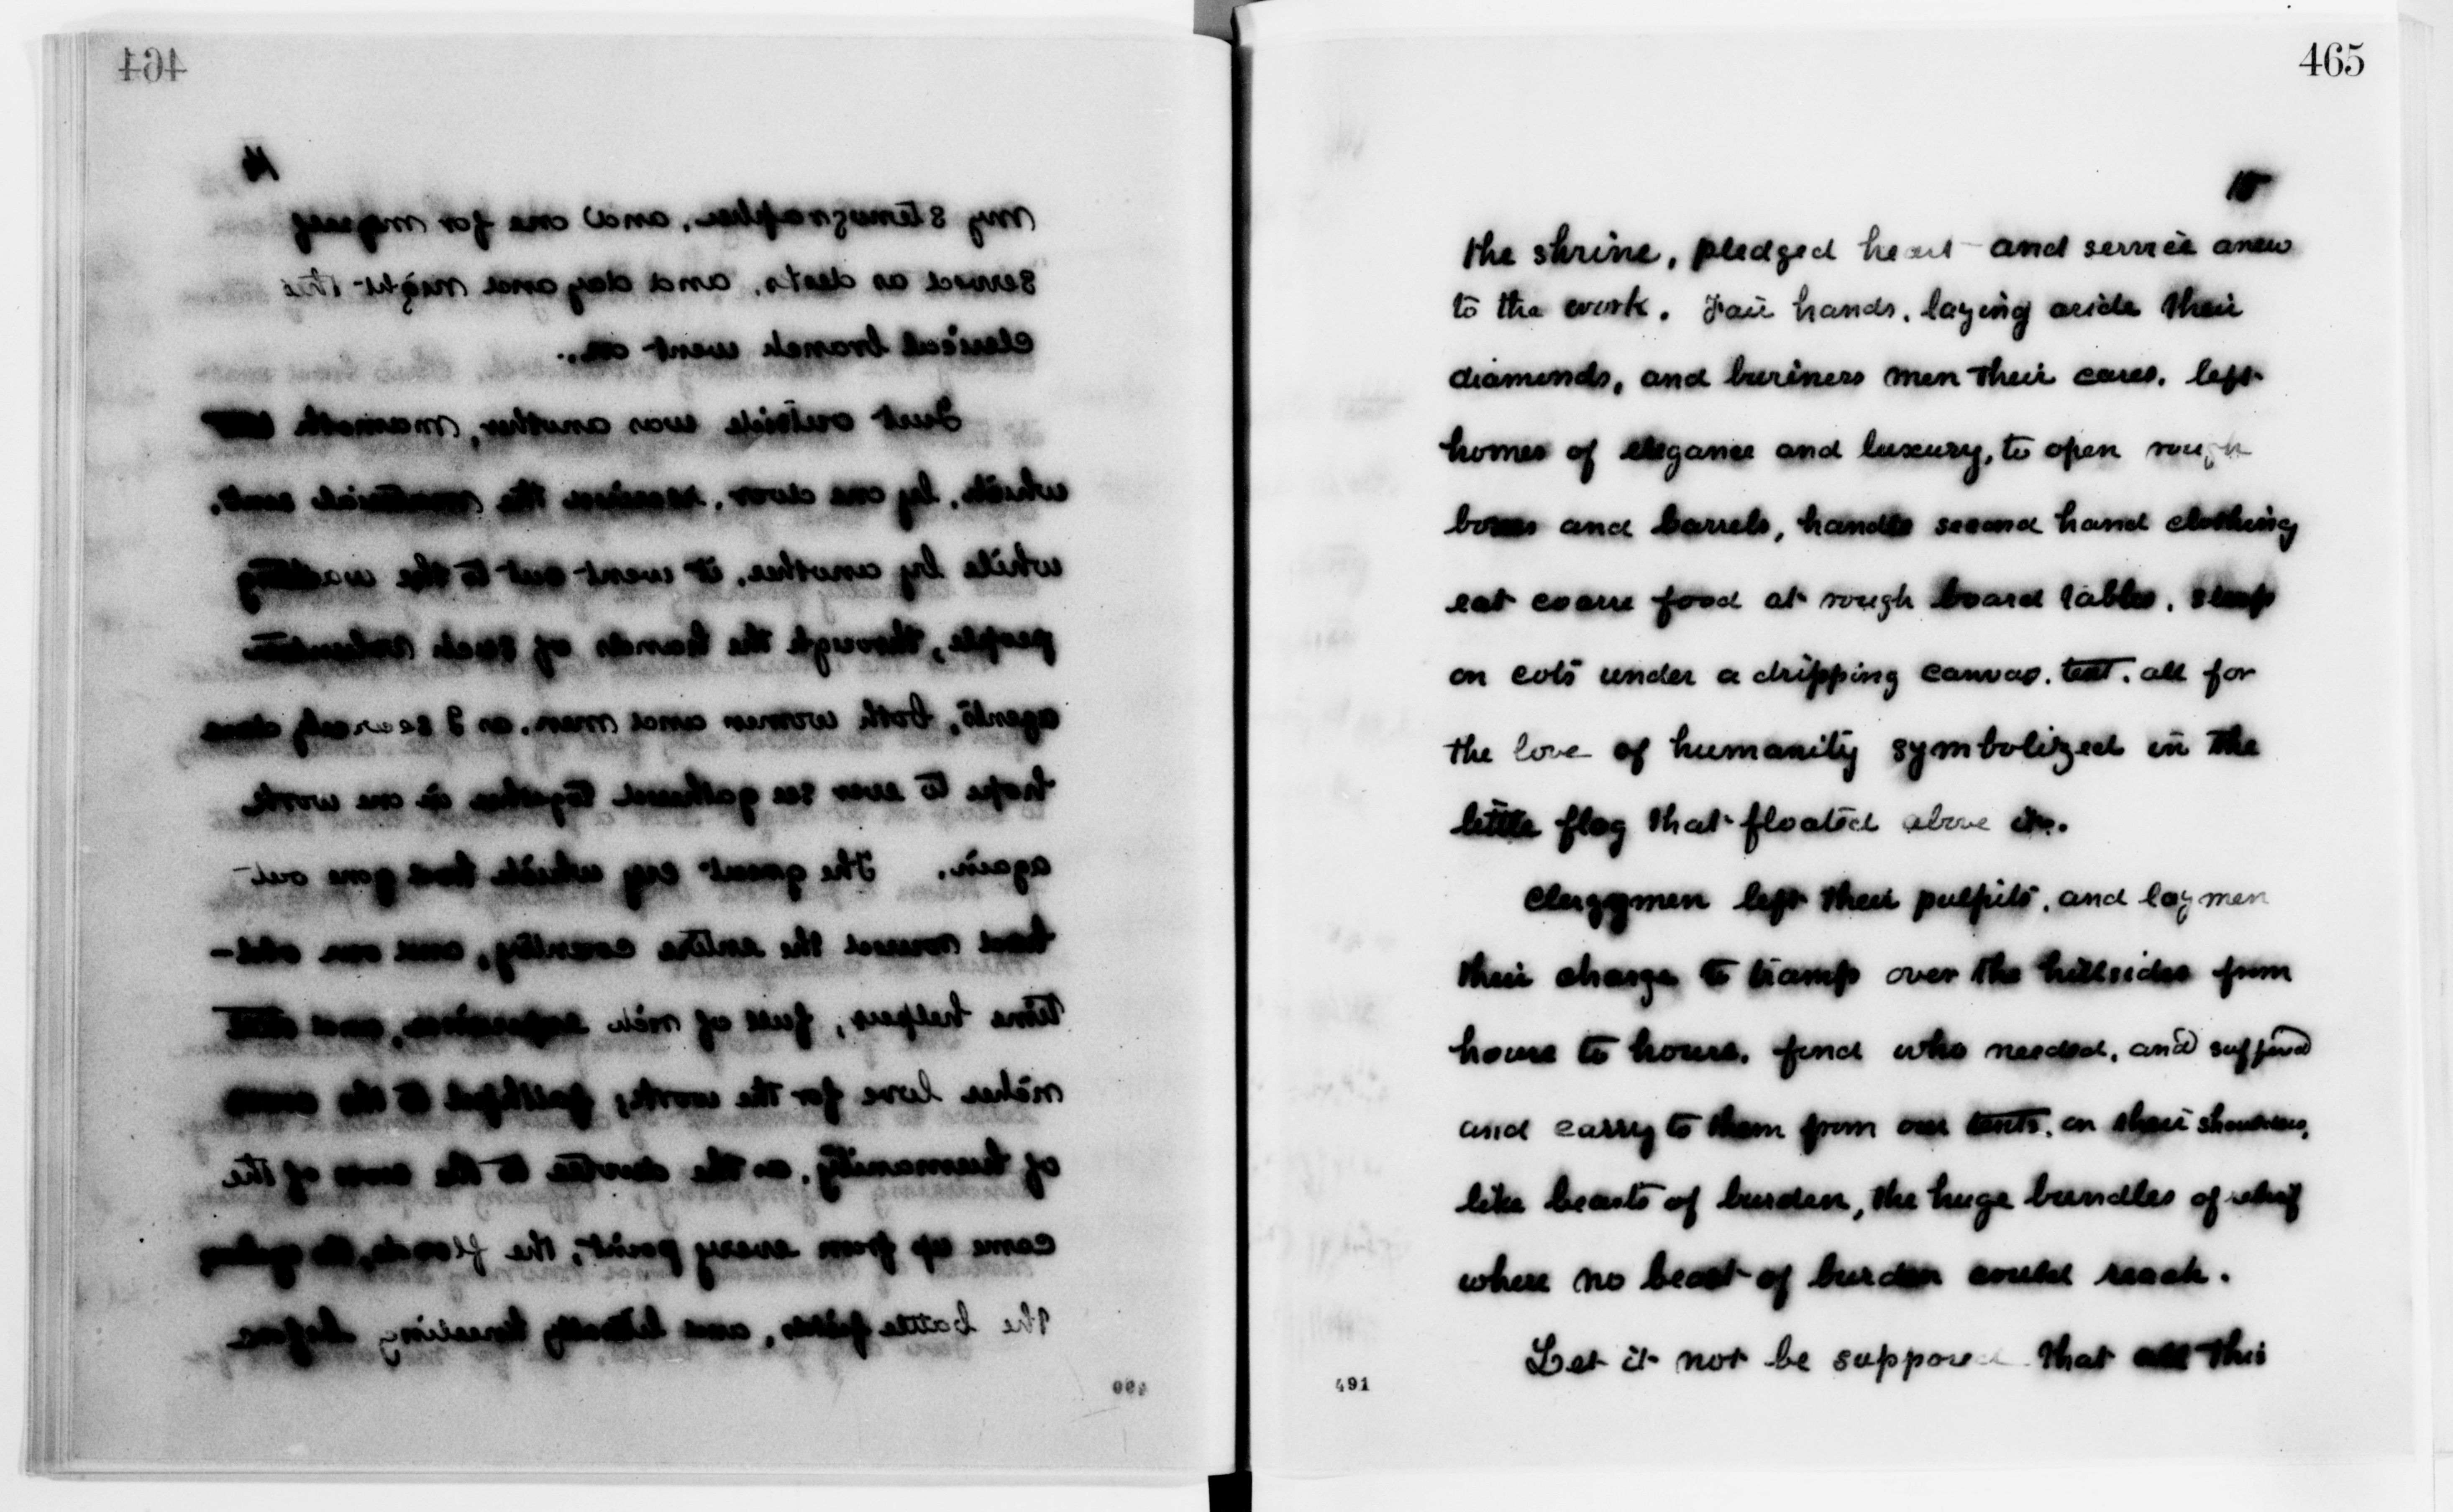 464
14
my stenographer, and one for myself
served as desks, and day and night this
clerical branch went on.
Just outside was another, mamoth
which, by one door, received the material sent,
while by another, it went out to the waiting
people, through the hands of such volunteer
agents, both women and men, as I scarcely dare
hope to ever see gathered together in one work
again. The great cry which had gone out
had moved the entire country, and our old-
time helpers, full of rich experience, and still
richer love for the work, faithful to the cross
of humanity, as the devotee to the cross of the
came up from every point, the floods, the cyclone,
the battle fields, and literally kneeling before
490
465
15
the shrine, pledged heart and service anew
to the work. Fair hands, laying aside their
diamonds, and business men their cares, left
homes of elegance and luxury, to open rough
boxes and barrels, handle second hand clothing
eat coarse food at rough board tables, sleep
on cots under a dripping canvas, tent, all for
the love of humanity symbolized in the
little flag that floated above it.
Clergymen left their pulpits, and laymen
their charge to tramp over the hillsides from
house to house, find who needed, and suffered
and carry to them from our tents, on their shoulders,
like beasts of burden, the huge bundles of relief
where no beast of burden could reach.
Let it not be supposed that all this
491